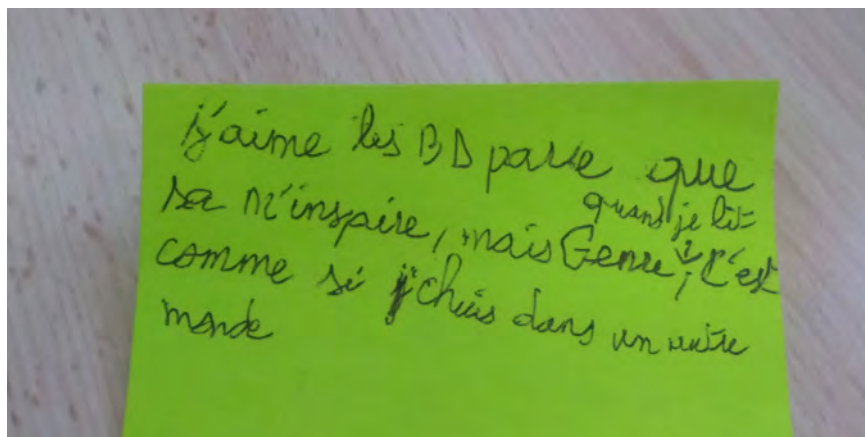 j'aime les BD parce que
sa m'inspire, mais Genre, quand je lit c'est
comme si j'chuis dans un autre
monde